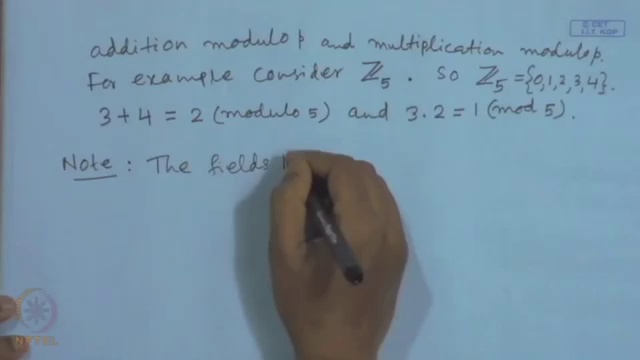 © CET
I.I.T. KGP
addition modulo p and multiplication modulo p.
For example consider ℤ₅ . So ℤ₅ = {0,1,2,3,4}.
3 + 4 = 2 (modulo 5) and 3 . 2 = 1 (mod 5).
Note : The fields
NPTEL